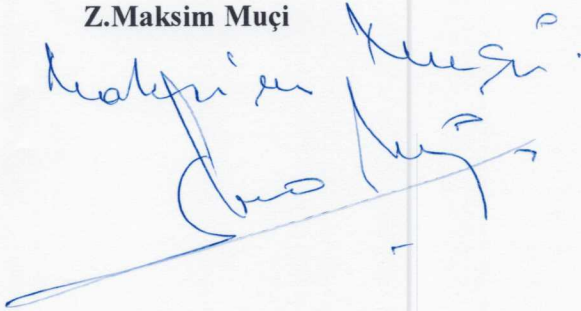 Z.Maksim Muçi
Maksim Muçi